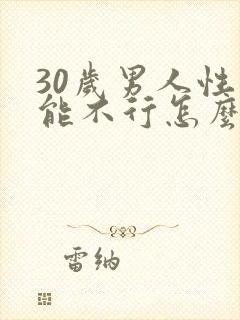 30歲男人性
能不行怎麼
雷纳